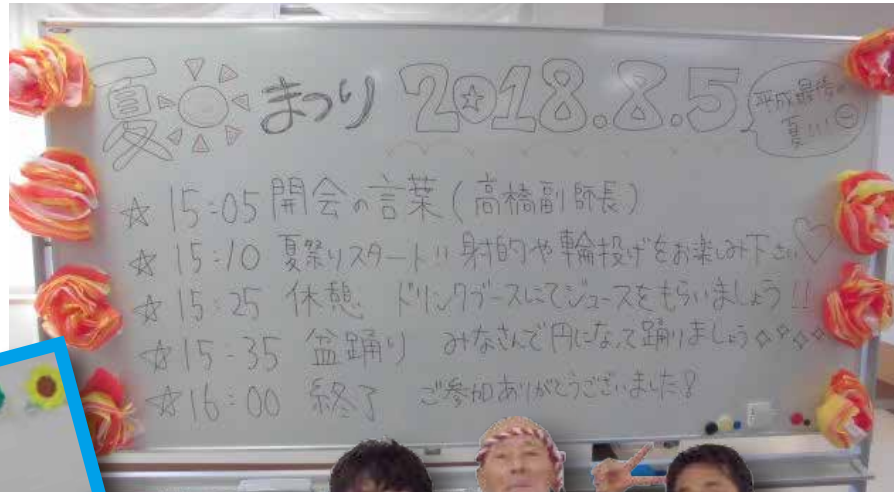 夏まつり 2018.8.5
平成最後の
夏!!!
☆15:05 開会の言葉(高橋副師長)
☆15:10 夏祭りスタート!! 射的や輪投げをお楽しみ下さい♡
☆15:25 休憩 ドリンクブースにてジュースをもらいましょう!!
☆15:35 盆踊り みなさんで円になって踊りましょう
☆16:00 終了 ご参加ありがとうございました!